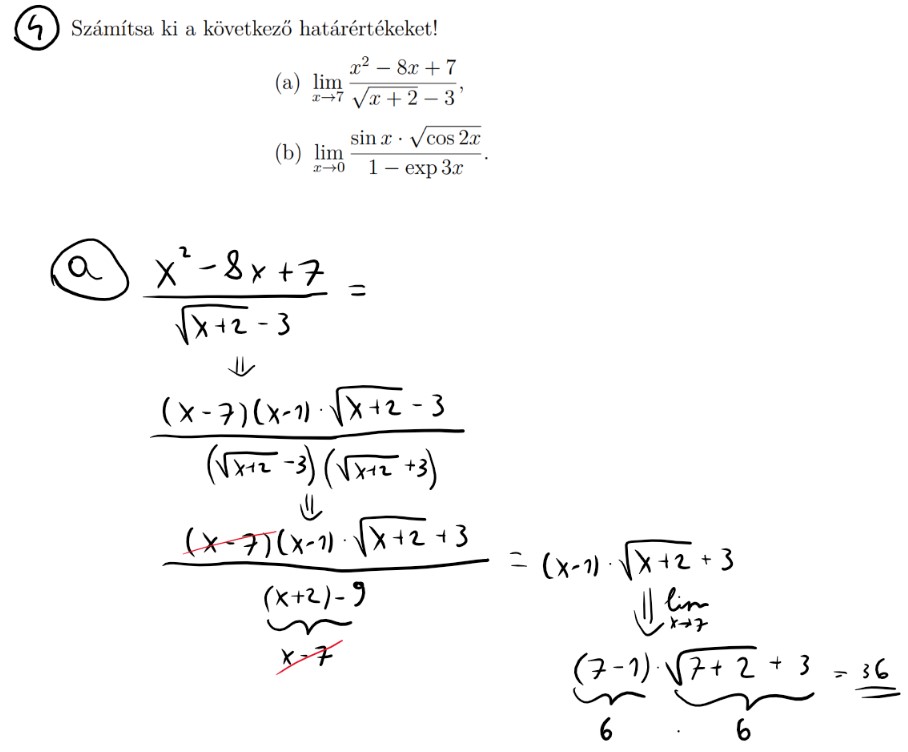 ④ Számítsa ki a következő határértékeket!
(a) lim_{x→7} (x² − 8x + 7)/(√(x + 2) − 3),
(b) lim_{x→0} (sin x · √(cos 2x))/(1 − exp 3x).
ⓐ (x² − 8x + 7)/(√(x+2) − 3) =
⇓
((x−7)(x−1) · √(x+2) − 3)/((√(x+2) − 3)(√(x+2) + 3))
⇓
((x−7)(x−1) · √(x+2) + 3)/((x+2) − 9) = (x−1) · √(x+2) + 3
x−7
⇓ lim x→7
(7−1) · √(7+2) + 3 = 36
6 · 6